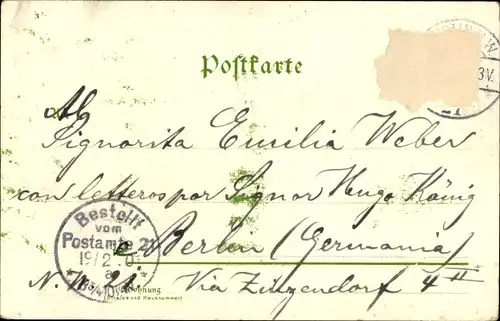 Postkarte
Signorita Emilia Weber
con letteros por Signor Hugo König
Berlin (Germania)
N.W. 21. Via Zinzendorf 4 II
Bestellt
vom
Postamte 21
19/2
Wohnung
(Straße und Hausnummer)
3V.